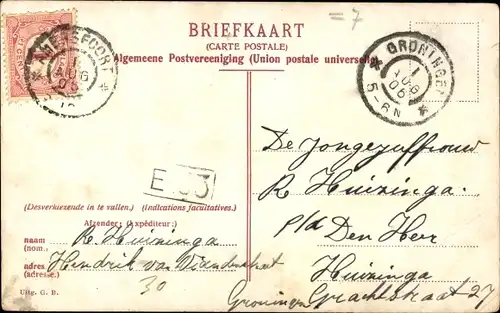 = 7
BRIEFKAART
(CARTE POSTALE)
Algemeene Postvereeniging (Union postale universelle)
AMERSFOORT
1
AUG
06
GRONINGEN
1
AUG
06
5-6N
E 33
(Desverkiezende in te vullen.) (Indications facultatives.)
Afzender: (Expéditeur:)
naam (nom.) R Huizinga
adres (adresse.) Hendrik van Viandenstraat
30
Uitg. G. B.
De Jongejuffrouw
R Huizinga.
p/a Den Heer
Huizinga
Grachtstraat 27
Groningen